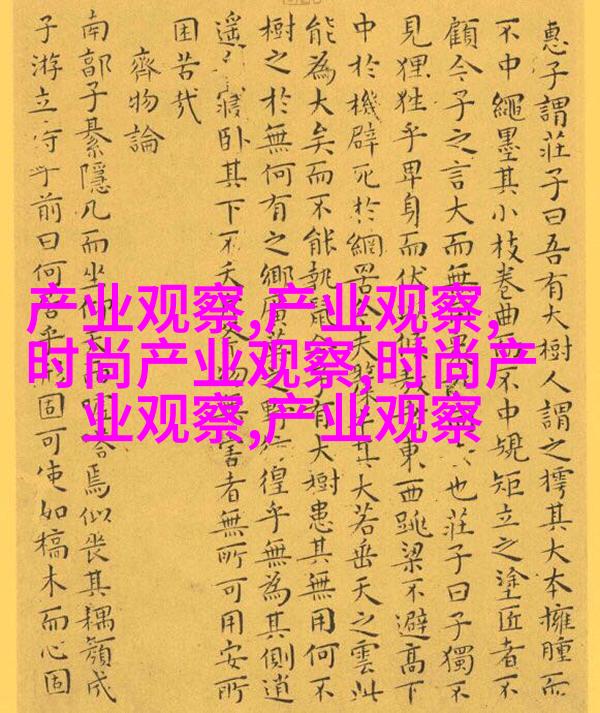 惠子謂莊子曰吾有大樹人謂之樗其大本擁腫而
不中繩墨其小枝卷曲而不中規矩立之塗匠者不
顧今子之言大而無 也莊子曰子獨不
見狸狌乎卑身而伏 東西跳梁不避高下
中於機辟死於網罟 夫斄牛其大若垂天之雲此
能為大矣而不能執鼠 有大樹患其無用何不
樹之於無何有之鄉廣莫之野彷徨乎無為其側逍
遙 寢卧其下不夭 物無害者無所可用安所
困苦哉
齊物論
南郭子綦隱几而坐仰天 焉似喪其耦顏成
子游立侍乎前曰何居乎形固可使如槁木而心固
产业观察,产业观察,
时尚产业观察,时尚产
业观察,产业观察